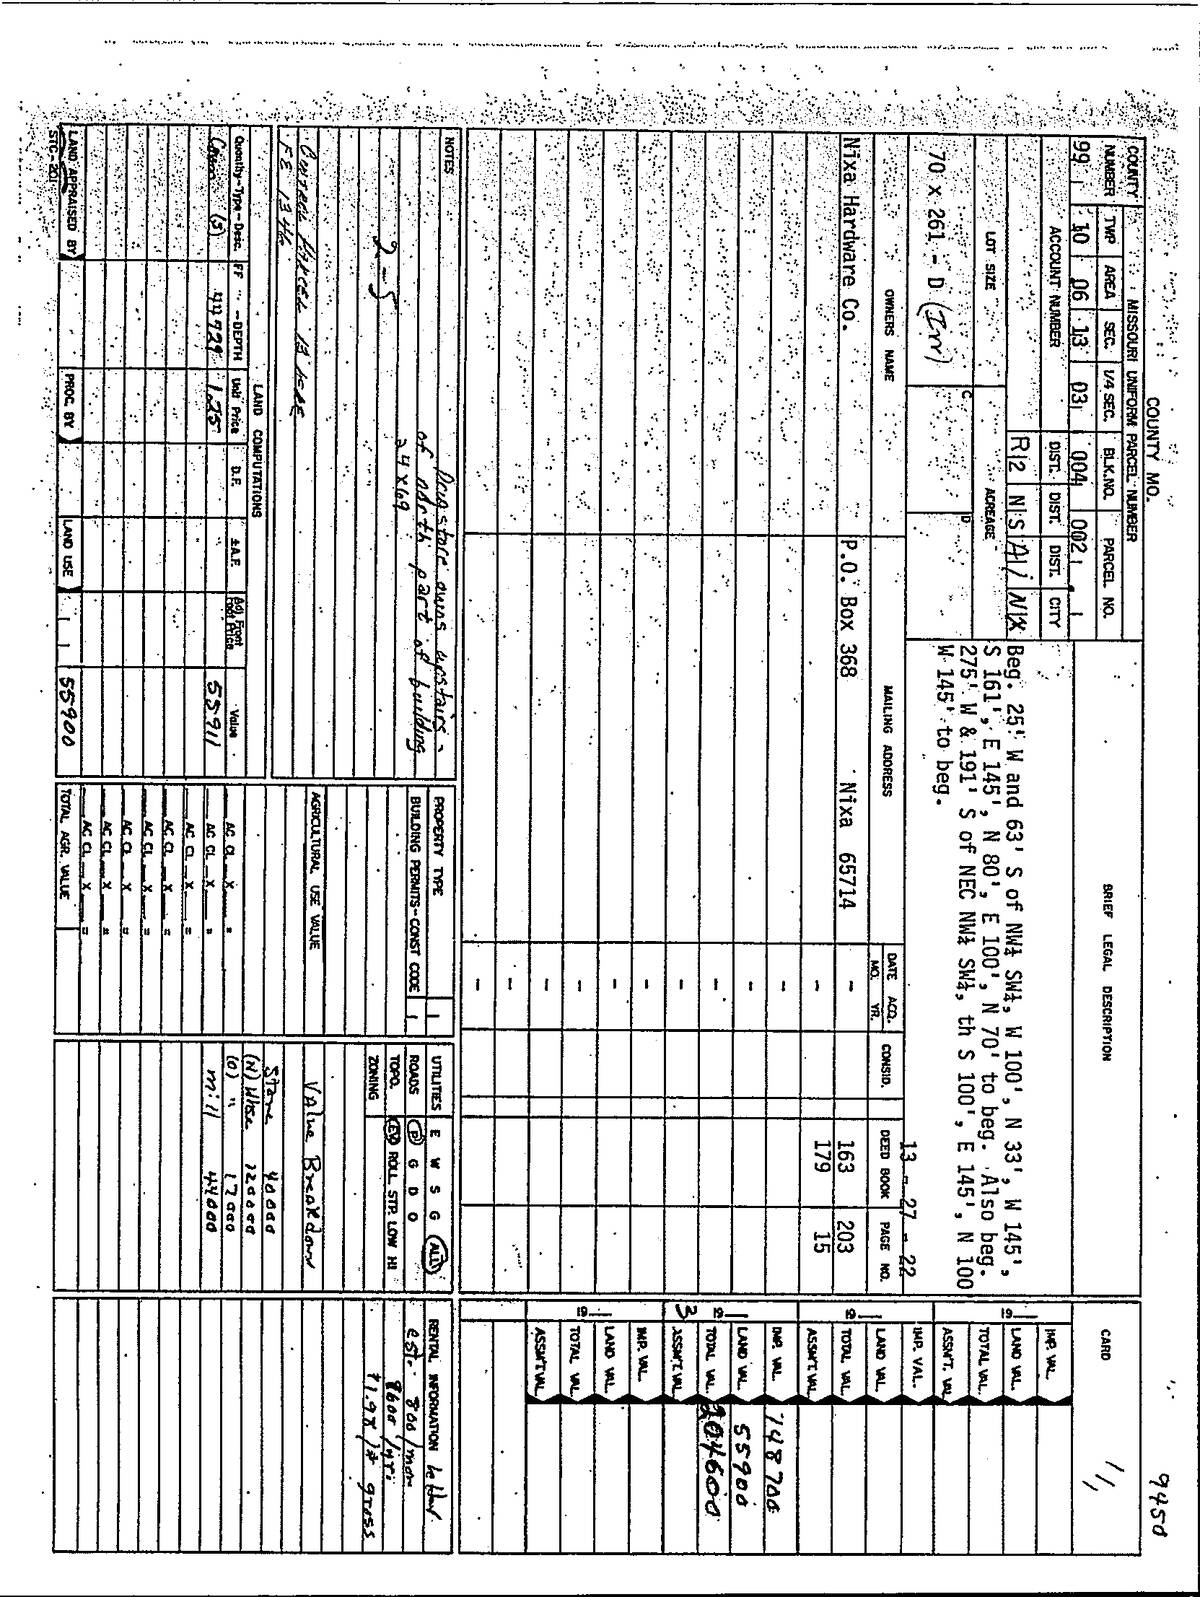 9450
COUNTY MO.
MISSOURI UNIFORM PARCEL NUMBER
BRIEF LEGAL DESCRIPTION
CARD
COUNTY NUMBER TWP AREA SEC. 1/4 SEC. BLK.NO. PARCEL NO.
99 10 06 13 03 004 002
ACCOUNT NUMBER DIST. DIST. DIST. CITY
R 2 N S A N X
LOT SIZE ACREAGE
C D
70 x 261 - D (Irr)
Beg. 25' W and 63' S of NW¼ SW¼, W 100', N 33', W 145',
S 161', E 145', N 80', E 100', N 70' to beg. Also beg.
275' W & 191' S of NEC NW¼ SW¼, th S 100', E 145', N 100
W 145' to beg.
13 - 27 - 22
OWNERS NAME MAILING ADDRESS DATE ACQ. MO. YR. CONSID. DEED BOOK PAGE NO.
Nixa Hardware Co. P.O. Box 368 Nixa 65714 - 163 203
- 179 15
19__ IMP. VAL.
LAND VAL.
TOTAL VAL.
ASSM'T. VAL.
19__ IMP. VAL.
LAND VAL.
TOTAL VAL.
ASSM'T. VAL.
19__ IMP. VAL. 148700
LAND VAL. 55900
TOTAL VAL. 204600
3 ASSM'T. VAL.
19__ IMP. VAL.
LAND VAL.
TOTAL VAL.
ASSM'T. VAL.
NOTES
Drug store owns upstairs
of north part of building
24 x 69
2-5
Contg Parcel 13 here
FE 13
PROPERTY TYPE
BUILDING PERMITS-CONST CODE
AGRICULTURAL USE VALUE
AC CL X =
AC CL X =
AC CL X =
AC CL X =
AC CL X =
AC CL X =
AC CL X =
AC CL X =
TOTAL AGR. VALUE
UTILITIES E W S G ALL
ROADS P G D O
TOPO. LEV ROLL STP. LOW HI
ZONING
Value Breakdown
Store 40000
(N) Whse 22000
(O) " 17000
mill 44000
RENTAL INFORMATION
est. 800/mon
9600/yr.
$1.98/# gross
LAND COMPUTATIONS
Quantity-Type-Desc. FF - DEPTH Unit Price D.F. ±A.F. Adj. Front Foot Price Value
Comm (S) 44729 1.25 55911
LAND APPRAISED BY PROC. BY LAND USE 55900